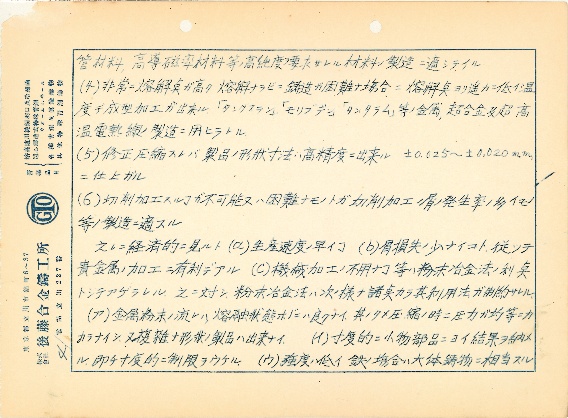 管材料、高導磁率材料等ノ高純度ヲ要求サレル材料ノ製造ニ適シテイル
(4)非常ニ熔解点ガ高ク熔解ナラビニ鋳造ガ困難ナ場合ニ熔解点ヨリ遙カニ低イ温
度デ成型加工ガ出来ル「タングステン」「モリブデン」「タンタラム」等ノ金属、超合金又超高
温電熱線ノ製造ニ用ヒラレル
(5)修正圧縮スレバ製品ノ形状寸法ハ高精度ニ出来ル ±0.025〜±0.020mm
ニ仕上ガル
(6)切削加工スルコトガ不可能又ハ困難ナモノ又ガ切削加工ノ屑ノ発生率ノ多イモノ
等ノ製造ニ適スル
之レニ経済的ニ見ルト(a)生産速度ノ早イコト(b)屑損失ノ少ナイコト、従ッテ
貴金属ノ加工ニ有利デアル(C)機械加工ノ不用ナコト等ハ粉末冶金法ノ利点
トシテアゲラレル 之ニ対シ、粉末冶金法ハ次ノ様ナ諸点カラ其利用法ガ制限サレル
(ア)金属粉末ノ流レハ熔融状態ホドニハ良クナイ其ノタメ圧縮ノ時ニ圧力ガ均等ニカ
カラナイ、又複雑ナ形状ノ製品ハ出来ナイ (イ)寸度的ニ小物部品ニヨイ結果ヲ納メ
ル 即チ寸度的ニ制限ヲウケル (ウ)強度ハ低イ 鉄ノ場合ハ大体鋳物ニ相当スル
営業品目
GTO
株式会社 後藤合金鋳工所